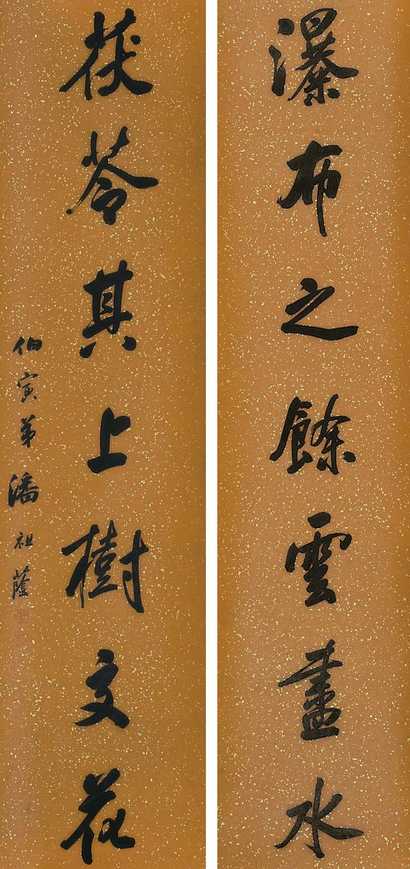 瀑布之餘雲盡水
茯苓其上樹文花
伯寅弟潘祖蔭